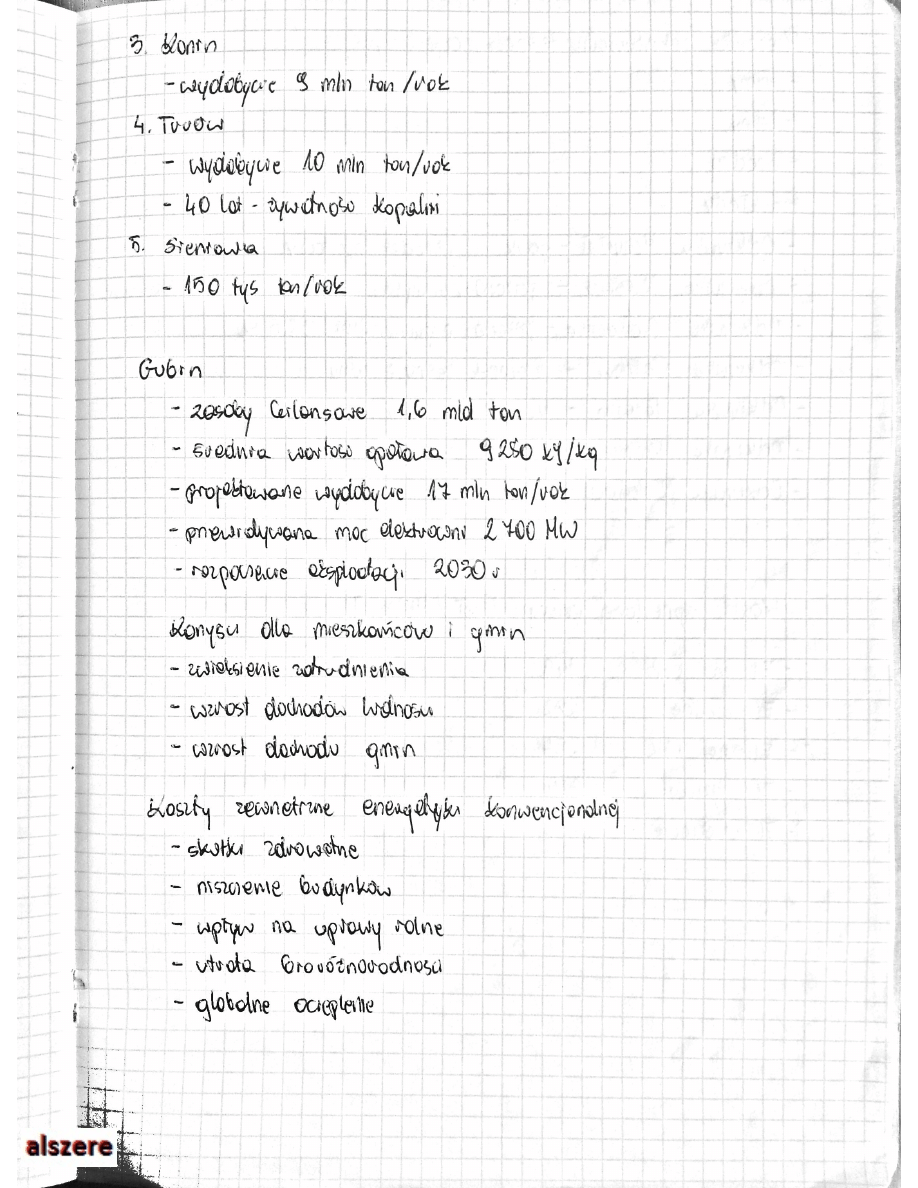 3. Konin
- wydobycie 9 mln ton/rok
4. Turów
- wydobycie 10 mln ton/rok
- 40 lat - żywotność kopalni
5. Sieniawa
- 150 tys ton/rok
Gubin
- zasoby bilansowe 1,6 mld ton
- średnia wartość opałowa 9250 kJ/kg
- projektowane wydobycie 17 mln ton/rok
- przewidywana moc elektrowni 2 700 MW
- rozpoczęcie eksploatacji 2030 r
Korzyści dla mieszkańców i gmin
- zwiększenie zatrudnienia
- wzrost dochodów ludności
- wzrost dochodu gmin
Koszty zewnętrzne energetyki konwencjonalnej
- skutki zdrowotne
- niszczenie budynków
- wpływ na uprawy rolne
- utrata bioróżnorodności
- globalne ocieplenie
alszere